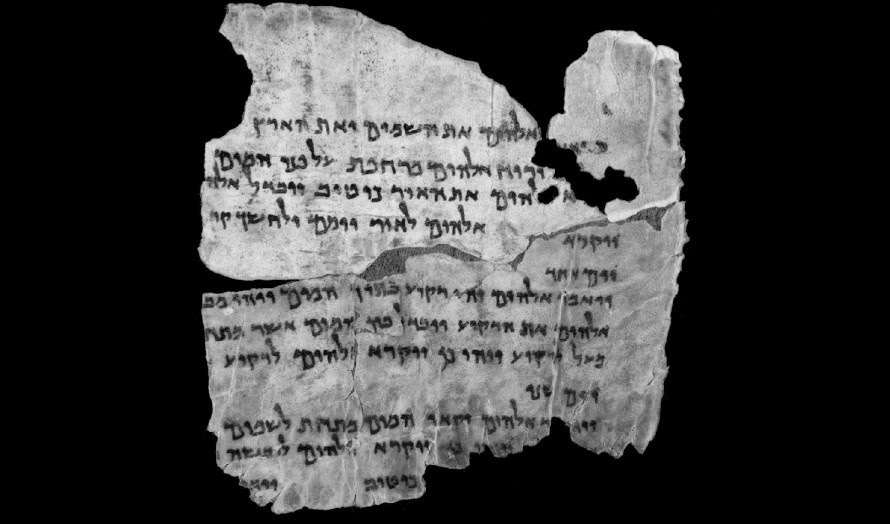 אלהים את השמים ואת הארץ
ורוח אלהים מרחפת על פני המים
אלהים את האור כי טוב ויבדל אלה
ויקרא אלהים לאור יומם ולחשך קר
יום אחד
ויאמר אלהים יהי רקיע בתוך המים ויהי מב
אלהים את הרקיע ויבדל בין המים אשר מתח
מעל לרקיע ויהי כן ויקרא אלהים לרקיע
יום שני
אלהים יקאו המים מתחת לשמים
ויקרא אלהים ליבשה
כי טוב